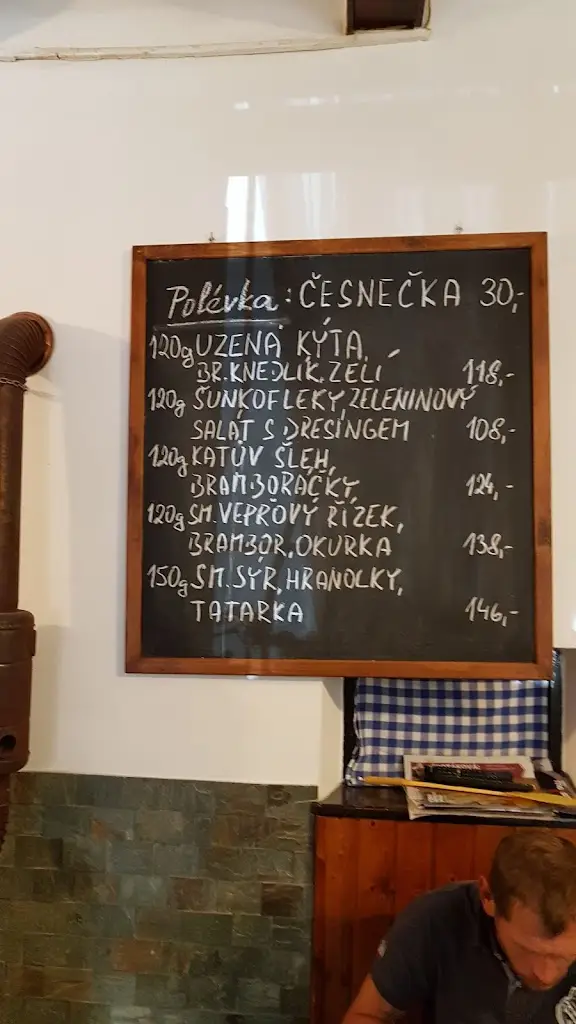 Polévka: ČESNEČKA 30,-
120g UZENÁ KÝTA,
BR. KNEDLÍK, ZELÍ 118,-
120g ŠUNKOFLEKY, ZELENINOVÝ
SALÁT S DRESINGEM 108,-
120g KATŮV ŠLEH,
BRAMBORÁČKY 124,-
120g SM. VEPŘOVÝ ŘÍZEK,
BRAMBOR, OKURKA 138,-
150g SM. SÝR, HRANOLKY,
TATARKA 146,-